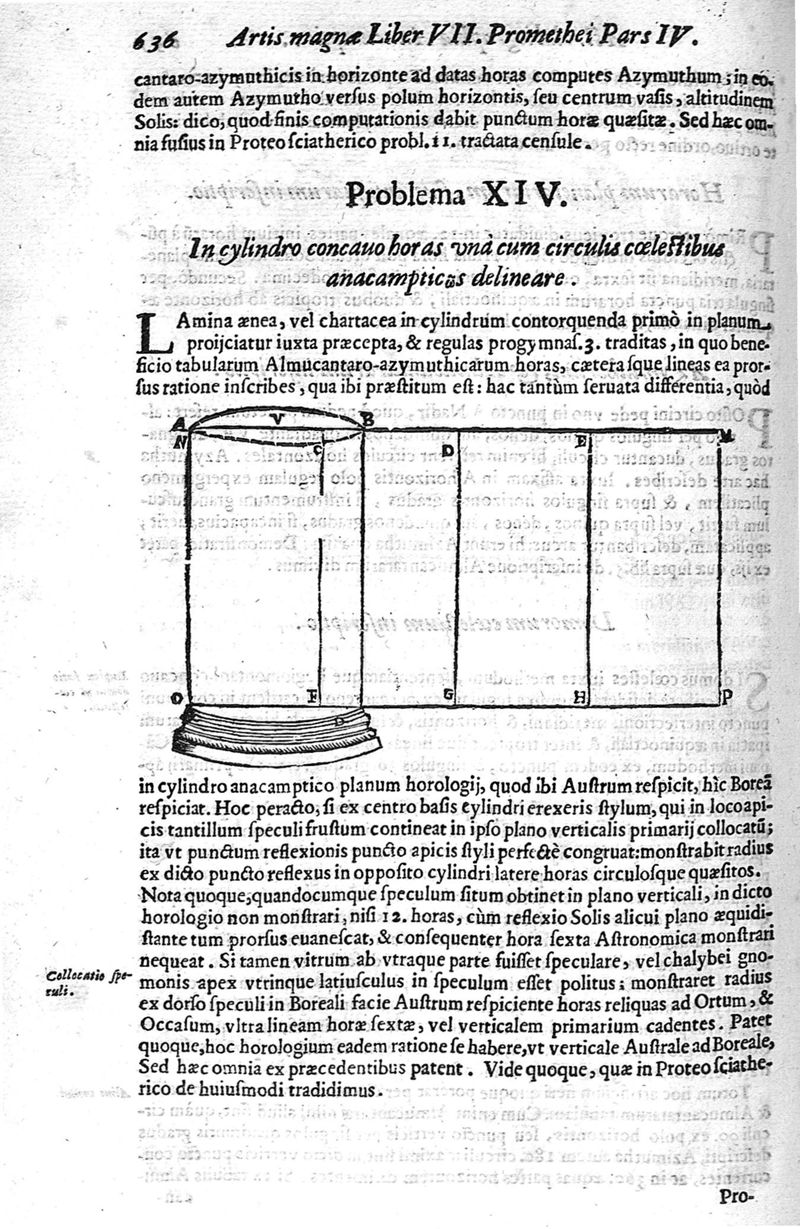 636 Artis magnæ Liber VII. Promethei Pars IV.
cantaro-azymuthicis in horizonte ad datas horas computes Azymuthum; in eo-
dem autem Azymutho versus polum horizontis, seu centrum vasis, altitudinem
Solis: dico, quod finis computationis dabit punctum horæ quæsitæ. Sed hæc om-
nia fusius in Proteo sciatherico probl. 11. tractata censule.
Problema XIV.
In cylindro concauo horas vnà cum circulis cœlestibus
anacampticωs delineare.
LAmina ænea, vel chartacea in cylindrum contorquenda primò in planum
proijciatur iuxta præcepta, & regulas progymnas. 3. traditas, in quo bene-
ficio tabularum Almucantaro-azymuthicarum horas, cæterasque lineas ea pror-
sus ratione inscribes, qua ibi præstitum est: hac tantùm seruata differentia, quòd
A V B
N C D E M
O F G H P
D
in cylindro anacamptico planum horologij, quod ibi Austrum respicit, hìc Boreã
respiciat. Hoc peracto, si ex centro basis cylindri erexeris stylum, qui in loco api-
cis tantillum speculi frustum contineat in ipso plano verticalis primarij collocatũ;
ita vt punctum reflexionis puncto apicis styli perfectè congruat: monstrabit radius
ex dicto puncto reflexus in opposito cylindri latere horas circulosque quæsitos.
Nota quoque, quandocumque speculum situm obtinet in plano verticali, in dicto
horologio non monstrari, nisi 12. horas, cùm reflexio Solis alicui plano æquidi-
stante tum prorsus euanescat, & consequenter hora sexta Astronomica monstrari
nequeat. Si tamen vitrum ab vtraque parte fuisset speculare, vel chalybei gno-
Collocatio spe-
culi.
monis apex vtrinque latiusculus in speculum esset politus; monstraret radius
ex dorso speculi in Boreali facie Austrum respiciente horas reliquas ad Ortum, &
Occasum, vltra lineam horæ sextæ, vel verticalem primarium cadentes. Patet
quoque, hoc horologium eadem ratione se habere, vt verticale Australe ad Boreale,
Sed hæc omnia ex præcedentibus patent. Vide quoque, quæ in Proteo sciathe-
rico de huiusmodi tradidimus.
Pro-